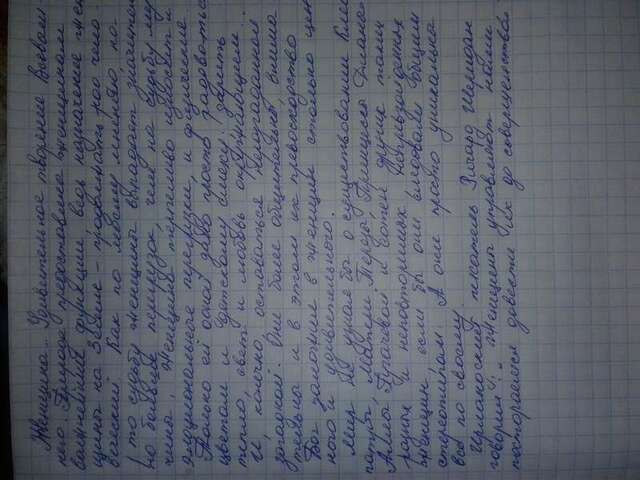 Женщина. Удивительное творение Всевыш
него. Природа предоставила женщинам
важнейшие функции, ведь назначение жен
щины на Земле – продолжать род чело
веческий. Как по моему мнению, на
то судьбу женщины выпадает значитель
но больше перегрузок, чем на судьбу му
чины. Женщина терпеливо износит и
эмоциональные перегрузки, и физические.
Только ей одной дано просто радоваться
цветам и детскому смеху, дарить
тепло, свет и любовь окружающим...
И, конечно, оставаться неразгаданной
загадкой. Они более общительны внима
тельны и в этом их превосходство
Бог заложил в женщин столько цен
ного и удивительного.
Мир не узнал бы о существовании Клео
патры, Матери Терезы, Принцессы Дианы
Аллы Пугачевой и сотен других таких
разных и неповторимых, непревзойденных
женщин, если бы они следовали общим
стереотипам. А они просто уникальны
все по своему.
Ирланский писатель Ричард Шеридан
говорил: „Женщины управляют нами
постараемся довести их до совершенства"